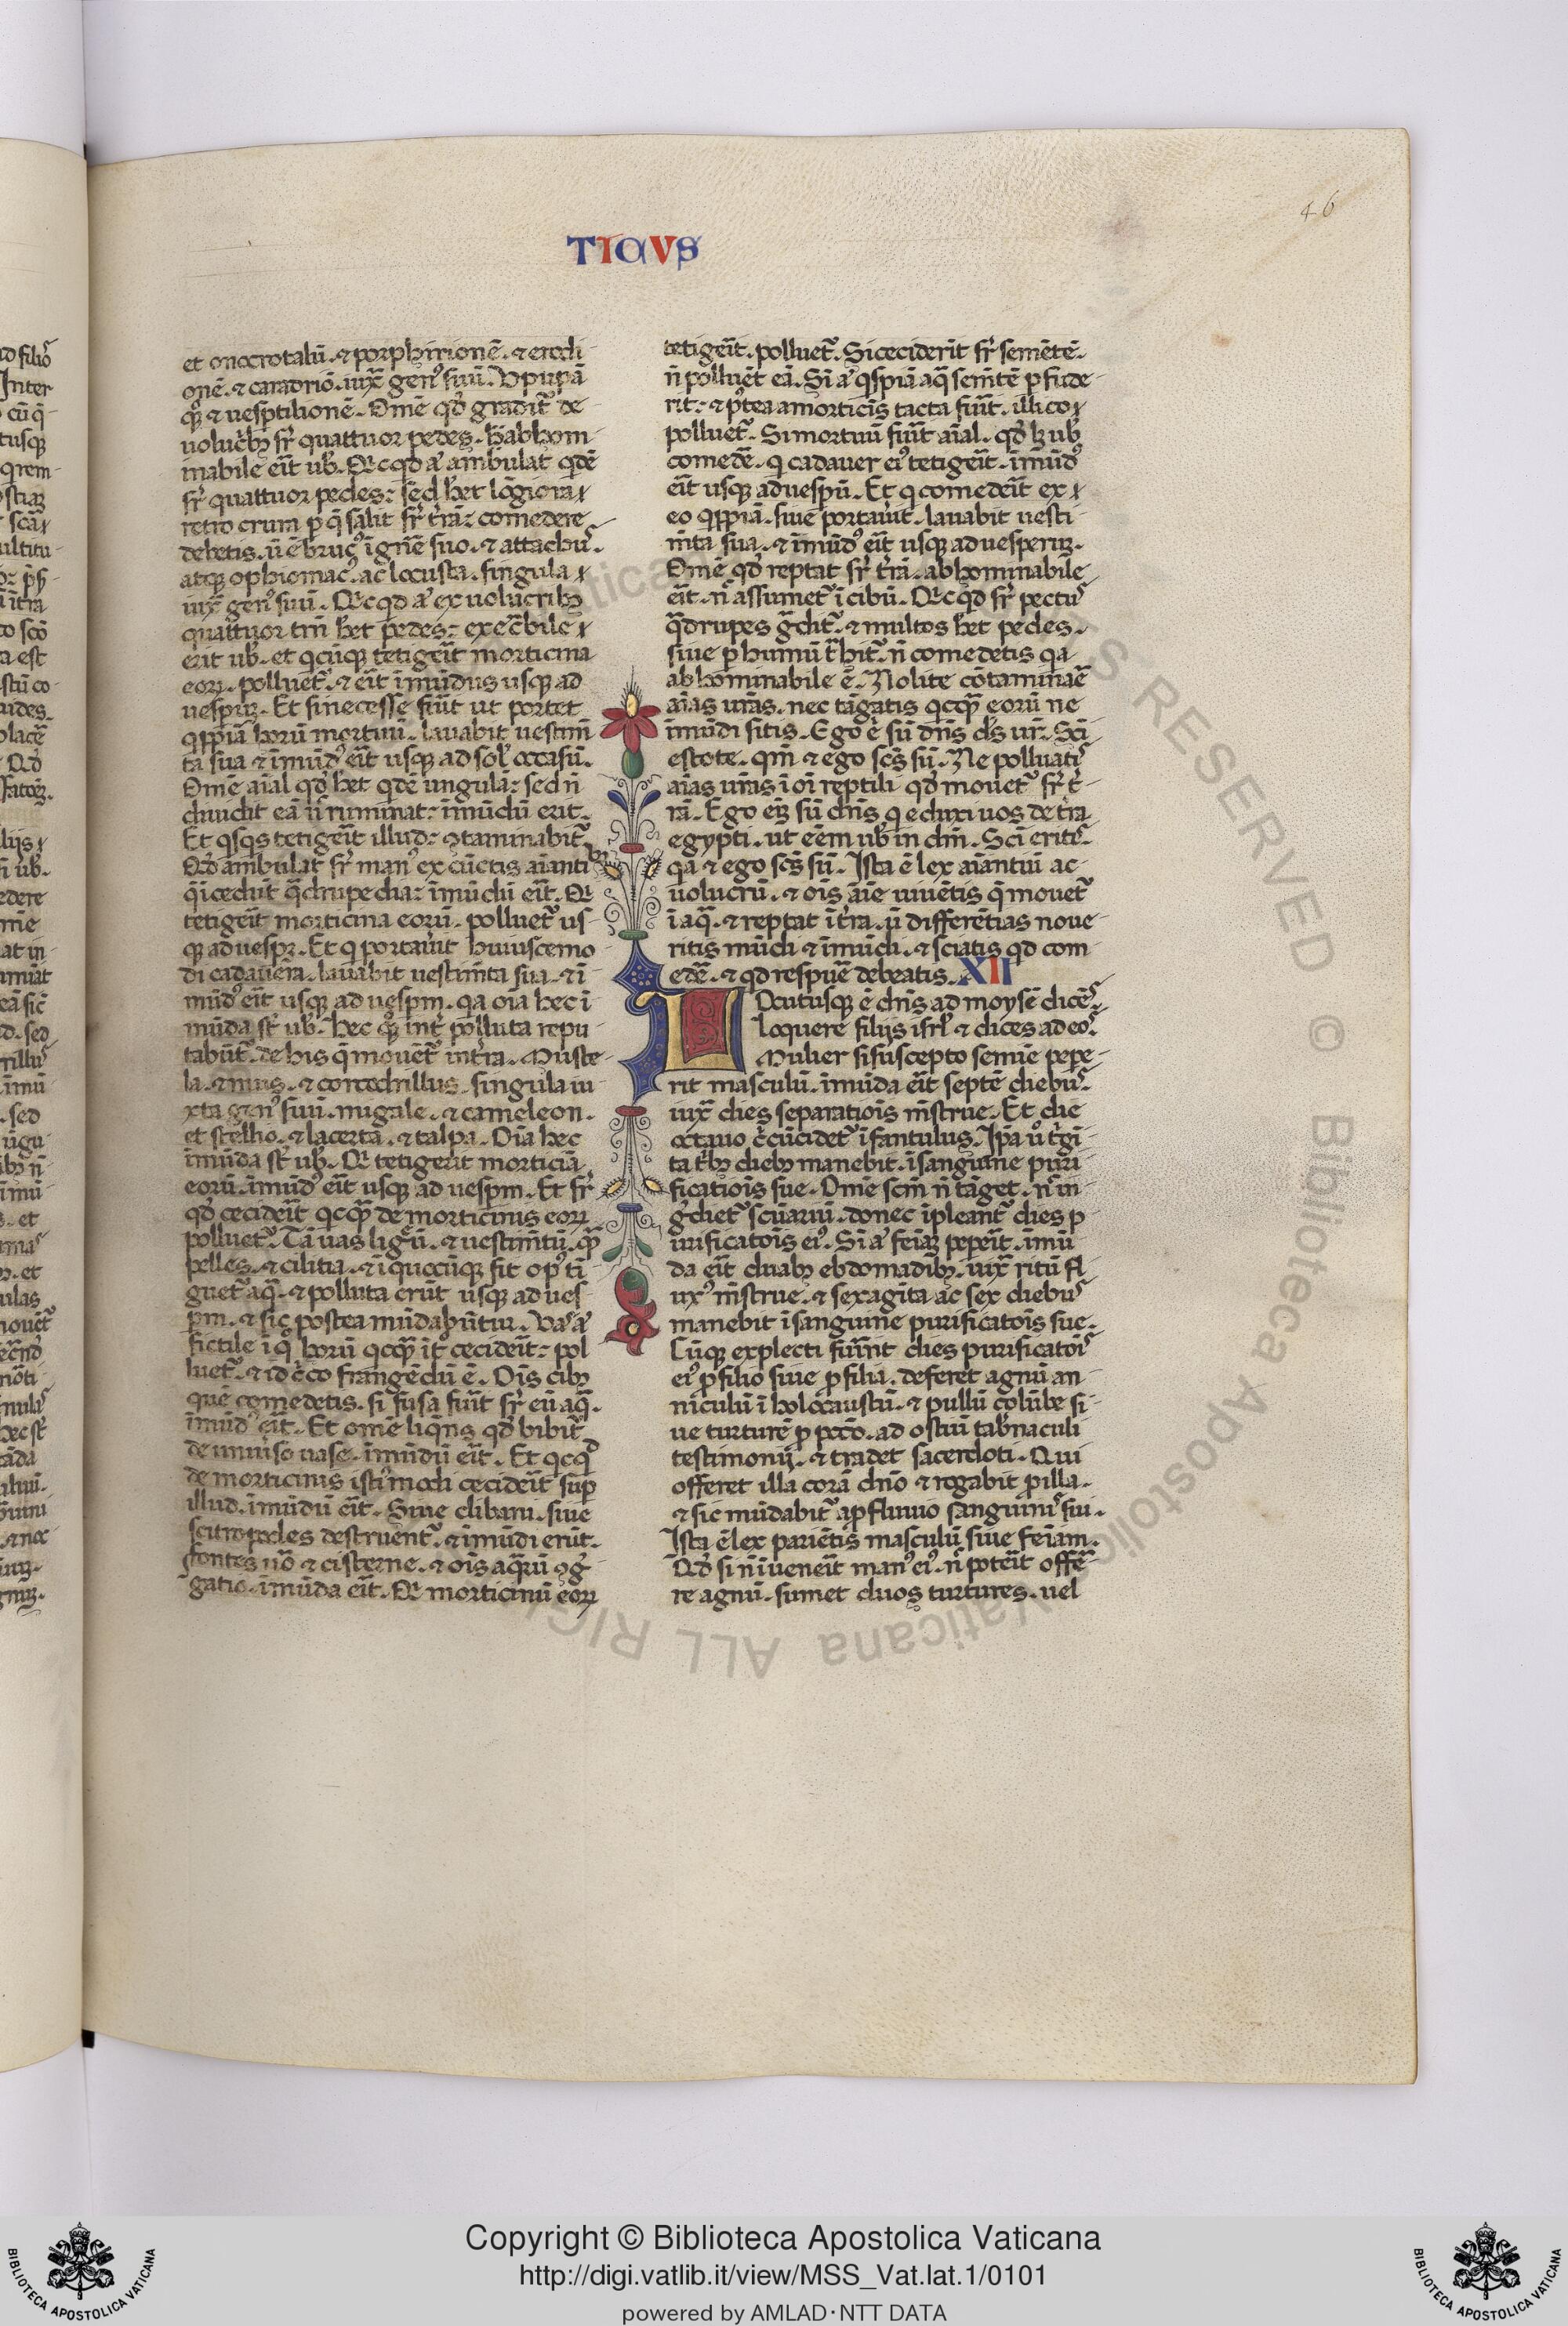 46
TICVS
et onocrotalū. ⁊ porphirionē. ⁊ erodi-
onē. ⁊ caradriō. iuxͣ genꝰ suū. Vpupā
qꝫ ⁊ uesptilionē. Omē qđ gradit᷑ de
uolucͥbꝫ sr̄ quattuor pedes. habhom-
inabile eīt ub̄. Qͥcqđ aͧ ambulat qdē
sr̄ quattuor pedes: sed h̄et lōgiora
retro crura p̲ q̄ salit sr̄ t̄rā: comedere
debetis. ū ē brucꝰ ī gn̄e suo. ⁊ attachuˢ.
atqꝫ ophiomacꝰ. ac locusta. singula
iuxͣ genꝰ suū. Qͥcqđ aͧ ex uolucribꝫ
quattuor tm̄ h̄et pedes: execͣbile
erit ub̄. et qͥcūqꝫ tetigeīt morticina
eoꝝ. polluet᷑. ⁊ eīt īmūdus usqꝫ ad
uesperꝫ. Et si necesse fuīt ut portet
qͥppiā horū mortuū. lauabit uestim̄
ta sua ⁊ īmūdꝰ eīt usqꝫ ad solˢ occasū.
Omē aīal qđ h̄et qdē ungulā: sed n̄
diuidit eā n̄ ruminat: īmūdū erit.
Et qͥsqͥs tetigeīt illud: ꝯtaminabit᷑.
Qđ ambulat sr̄ manꝰ ex cūctis aīanti
bꝫ
q̄ īcedūt qͣdrupedia: īmūdū eīt. Qͥ
tetigeīt morticina eorū. polluet᷑ us-
qꝫ ad uespꝫ. Et qͥ portaūit huiuscemo-
di cadauera. lauabit uestim̄ta sua. ⁊ ī-
mūdꝰ eīt usqꝫ ad uespm̄. qͥa oīa hec ī
mūda st̄ ub̄. hec qꝫ int̄ polluta repu-
tabūt᷑. de his q̄ mouēt᷑ in t̄ra. Muste-
la. ⁊ mus. ⁊ corcodrillus. singula iu
xta genꝰ suū. migale. ⁊ cameleon.
et stelhio. ⁊ lacerta. ⁊ talpa. Oīa hec
īmūda st̄ ub̄. Qͥ tetigerit morticiā
eorū. īmūdꝰ eīt usqꝫ ad uespm̄. Et sr̄
qđ cecideīt qͥcqͣ̄ de morticinis eoꝝ
polluet᷑. Tā uas ligͤū. ⁊ uestim̄tū. qͣ̄
pelles. ⁊ cilitia. ⁊ ī quocūqꝫ fit opꝰ tī
guet᷑ aqͣ. ⁊ polluta erūt usqꝫ ad ues-
pm̄. ⁊ sic postea mūdabūtur. Vas aͧ
fictile ī qͦ horū qͥcqͣ̄ ītͣ cecideīt: pol
luet᷑. ⁊ idcͥco frangēdū ē. Oīs cibꝰ
quē comedetis. si fusa fuīt sr̄ eū aqͣ.
īmūdꝰ eīt. Et omē liqͣns qđ bibit᷑
de uniuˢo uase. īmūdū eīt. Et qͥcqđ
de morticinis istiꝰmodi cecideīt sup̄
illud. īmūdū eīt. Siue clibani. siue
scitropedes destruent᷑. ⁊ īmūdi erūt.
fontes uō ⁊ cisterne. ⁊ oīs aqͣrū ꝯgͤ
gatio. īmūda eīt. Qͥ morticinū eoꝝ
tetigeīt. polluet᷑. Si ceciderīt sr̄ semētē.
n̄ polluēt eā. Si aͧ qͥspiā aqͣ semētē p̲fude-
rit: ⁊ pͦtea a morticīs tacta fuīt. illico
polluet᷑. Si mortuū fuīt aīal. qđ lꝫ ub̄
comedē. qͥ cadauer eiꝰ tetigeīt. īmūdꝰ
eīt usqꝫ ad uespū. Et qͥ comedeīt ex
eo qͥppiā. siue portaūit. lauabit uesti-
m̄ta sua. ⁊ īmūdꝰ eīt usqꝫ ad uesperuꝫ.
Omē qđ reptat sr̄ t̄rā. abhominabile
eīt. n̄ assumet᷑ ī cibū. Qͥcqͥđ sr̄ pectuˢ
qͣdrupes gͣdit᷑. ⁊ multos h̄et pedes.
siue p̲ humū tͣhit᷑. n̄ comedetis qͥa
abhominabile ē. Nolite cōtaminaē
aīas ur̄as. nec tāgatis qͥcqͣ̄ eorū ne
īmūdi sitis. Ego ē sū dn̄s dˢs ur̄. Sc̄i
estote. qm̄ ⁊ ego sc̄s sū. Ne polluatiˢ
aīas ur̄as ī oī reptili qđ mouet᷑ sr̄ t̄-
rā. Ego eīꝫ sū dn̄s. qͥ eduxi uos de t̄ra
egypti. ut eēm ub̄ in dm̄. Sc̄i eritiˢ.
qͥa ⁊ ego sc̄s sū. Ista ē lex aīantiū ac
uolucrū. ⁊ oīs aīe uiuētis q̄ mouet᷑
ī aqͣ. ⁊ reptat ī t̄ra. ut̄ differētias noue-
ritis mūdi ⁊ īmūdi. ⁊ sciatis qͥd com
edē. ⁊ qͥd respuē debeatis. XII
LOcutusqꝫ ē dn̄s ad moysē dicēˢ.
loquere filijs isrl̄ ⁊ dices ad eoˢ.
Mulier si suscepto semīe pepe-
rit masculū. īmūda eīt septē diebuˢ.
iuxͣ dies separatiōis mn̄strue. Et die
octauo cͥcūcidet᷑ īfantulus. Ip̄a uͦ tͥgī-
ta tͥbꝫ diebꝫ manebit. ī sanguine puri-
ficatiōis sue. Omē scm̄ n̄ tāget. nͨ in-
gͤdiet᷑ sc̄uariū. donec īpleant᷑ dies p-
urificatōis eiꝰ. Si aͧ feīaꝫ pepeīt. īmū
da eīt duabꝫ ebdomadibꝫ. iuxͣ ritū fl
uxꝰ mn̄strue. ⁊ sexagīta ac sex diebuˢ
manebit ī sanguine purificatōis sue.
Cūqꝫ expleti fuīnt dies purificatōiˢ
eiꝰ p̲ filio siue p̲ filia. deferet agnū an
niculū ī holocaustū. ⁊ pullū colūbe si-
ue turturē p̲ pcc̄o. ad ostiū tab̄naculi
testimonij. ⁊ tradet sacerdoti. Qui
offeret illa corā dn̄o ⁊ rogabit p̲ illa.
⁊ sic mūdabit᷑ a p̲fluuio sanguiniˢ sui.
Ista ē lex pariētis masculū siue feīam.
Qđ si n̄ īueneīt manꝰ eiꝰ. nͨ poteīt offē-
re agnū. sumet duos turtures. uel
Copyright © Biblioteca Apostolica Vaticana
http://digi.vatlib.it/view/MSS_Vat.lat.1/0101
powered by AMLAD·NTT DATA
BIBLIOTECA APOSTOLICA VATICANA
BIBLIOTECA APOSTOLICA VATICANA
ALL RIGHTS RESERVED © Biblioteca Apostolica Vaticana